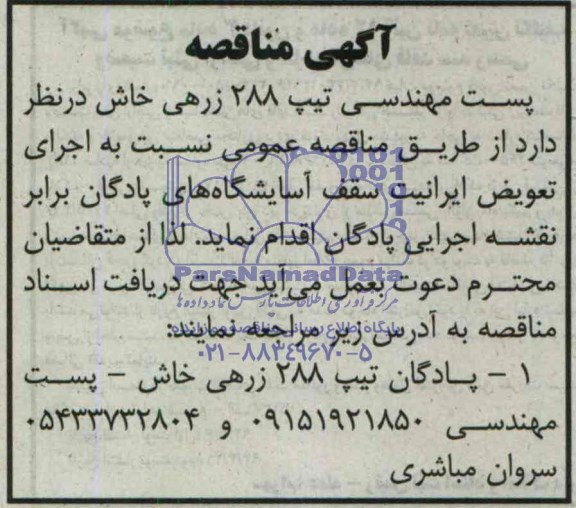 آگهی مناقصه
پست مهندسی تیپ ۲۸۸ زرهی خاش درنظر
دارد از طریق مناقصه عمومی نسبت به اجرای
تعویض ایرانیت سقف آسایشگاه‌های پادگان برابر
نقشه اجرایی پادگان اقدام نماید. لذا از متقاضیان
محترم دعوت بعمل می‌آید جهت دریافت اسناد
مناقصه به آدرس زیر مراجعه نمایند:
۱ - پادگان تیپ ۲۸۸ زرهی خاش - پست
مهندسی ۰۹۱۵۱۹۲۱۸۵۰ و ۰۵۴۳۳۷۳۲۸۰۴
سروان مباشری
ParsNamadData
مرکز فرآوری اطلاعات پارس نماد داده ها
پایگاه اطلاع رسانی مناقصه و مزایده
۰۲۱-۸۸۳۴۹۶۷۰-۵